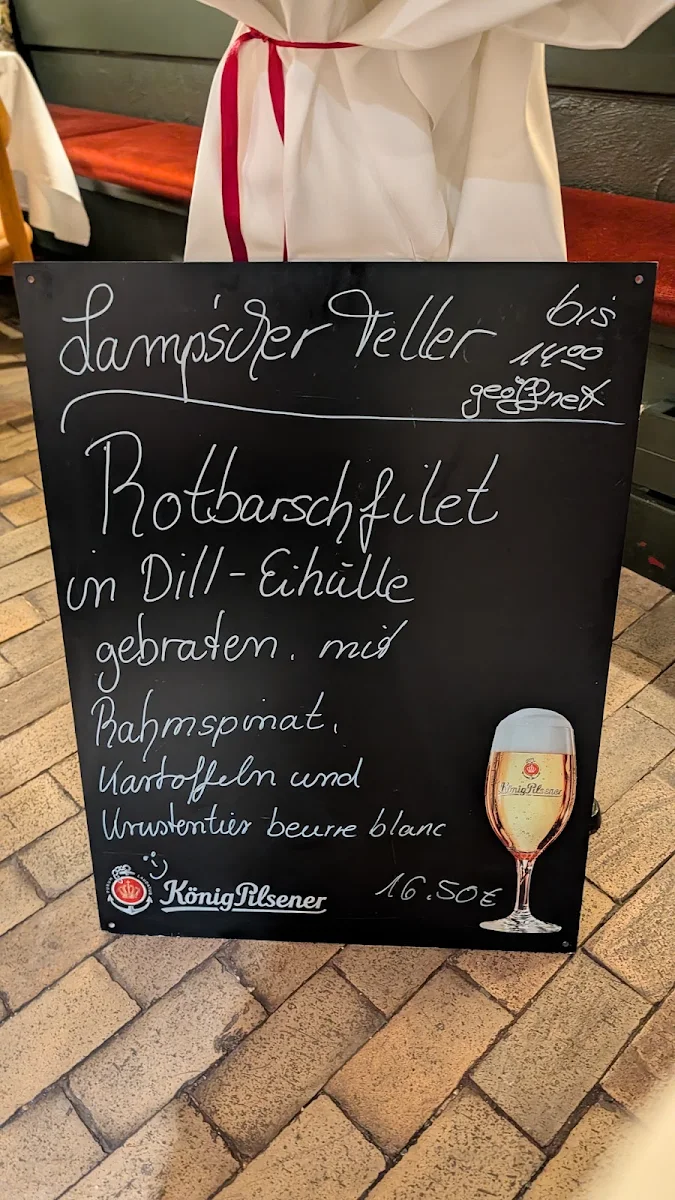 Lamp'scher Teller bis
14⁰⁰
geöffnet
Rotbarschfilet
in Dill-Eihülle
gebraten. mit
Rahmspinat,
Kartoffeln und
Krustentier beurre blanc
:)
König Pilsener
16.50€
König Pilsener